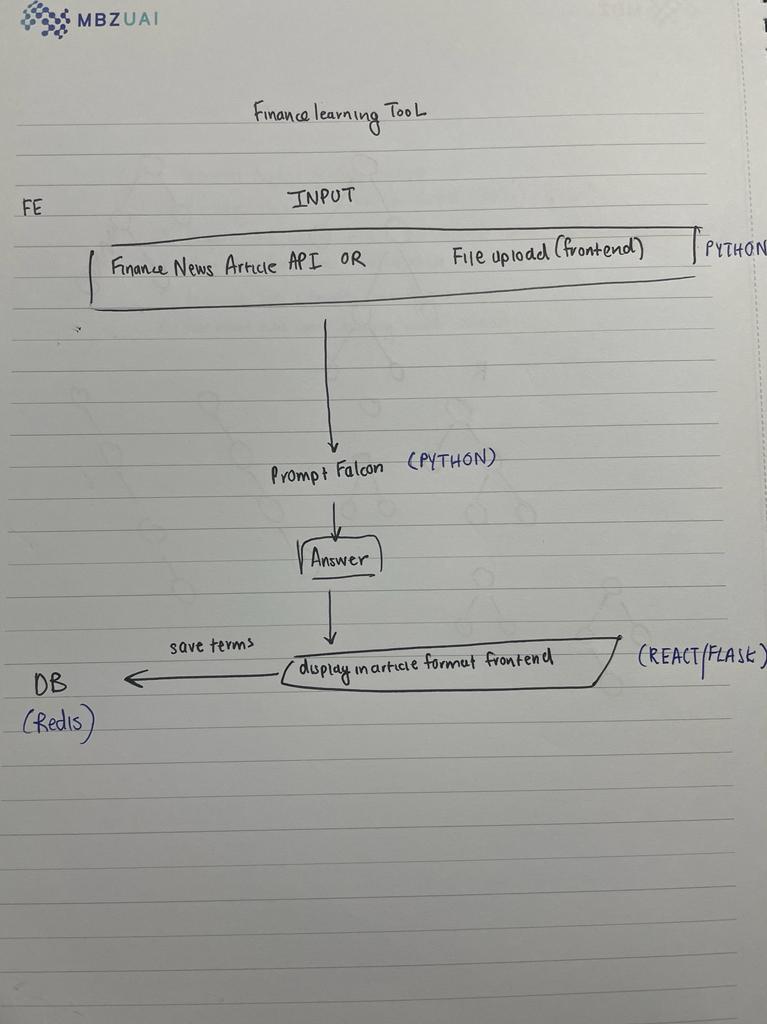 MBZUAI
Finance learning TooL
FE
INPUT
Finance News Article API OR File upload (frontend)
PYTHON
Prompt Falcon (PYTHON)
Answer
save terms
display in article format frontend
(REACT/FLASK)
DB
(Redis)